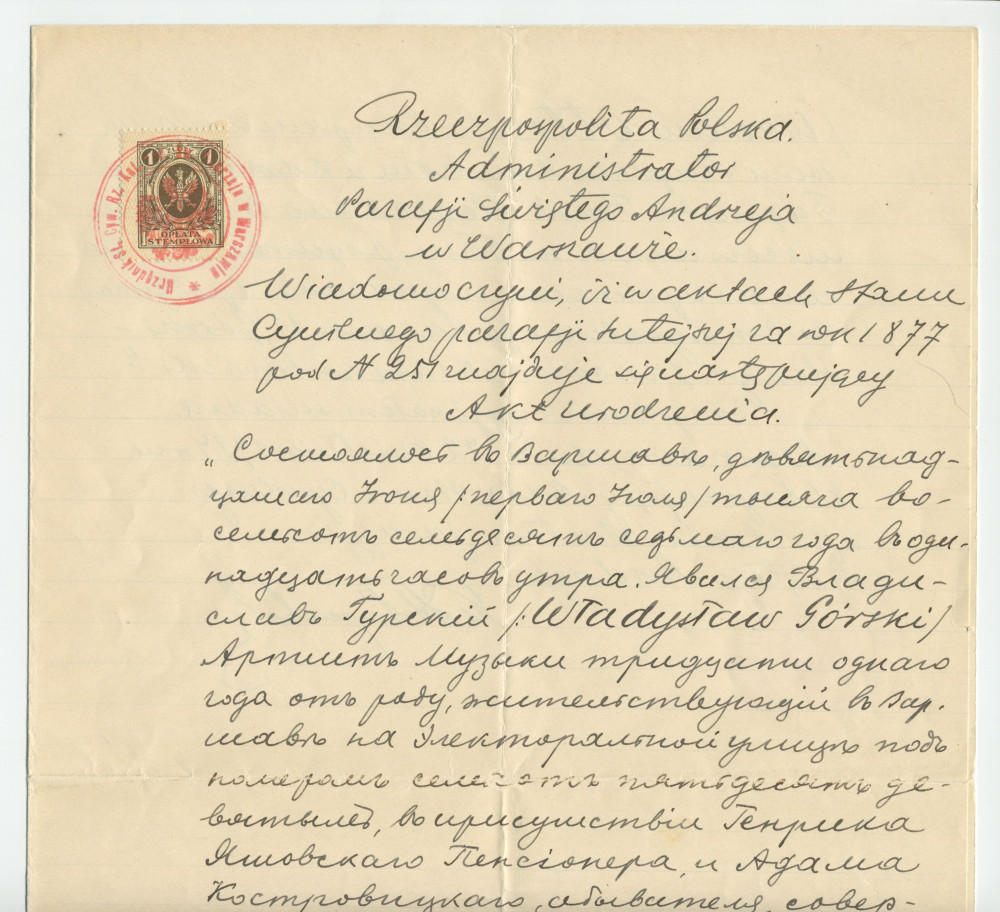 1 1
OPŁATA
STEMPLOWA
Urzędnik St. Cyw. Rz. Kat. Andrzeja w Warszawie *
Rzeczpospolita Polska.
Administrator
Parafji Świętego Andrzeja
w Warszawie.
Wiadomo czyni, iż w aktach Stanu
Cywilnego parafji tutejszej za rok 1877
pod N 251 znajduje się następujący
Akt urodzenia.
„Состоялось въ Варшавѣ, девятьнад-
цатаго Іюня /:перваго Іюля/ тысяча во-
семьсотъ семьдесятъ седьмаго года въ оди-
надцать часовъ утра. Явился Влади-
славъ Гурскій /:Władysław Górski/
Артистъ Музыки тридцати однаго
года отъ роду, жительствующій въ Вар-
шавѣ на Электоральной улицѣ подъ
номеромъ семьсотъ пятьдесятъ де-
вятымъ, въ присутствіи Генрика
Яшовскаго Пенсіонера, и Адама
Костровицкаго, обывателя, совер-